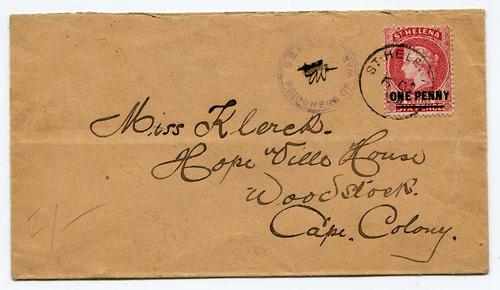 ST. HELENA
ONE PENNY
ST. HELENA
PRISONERS OF WAR
Miss Klerck.
Hope Ville House
Woodstock.
Cape. Colony.
1/-